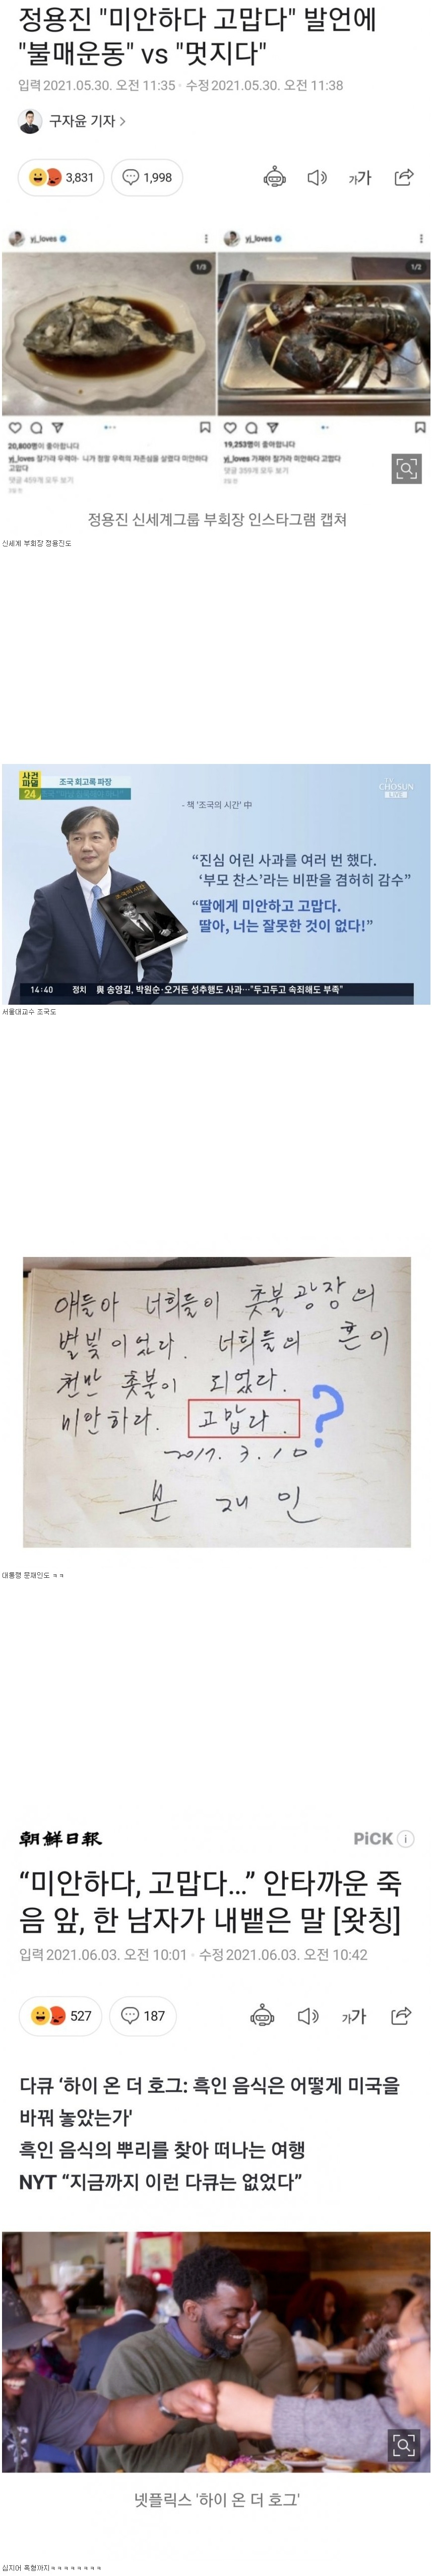 정용진 "미안하다 고맙다" 발언에
"불매운동" vs "멋지다"
입력 2021.05.30. 오전 11:35 · 수정 2021.05.30. 오전 11:38
구자윤 기자 >
3,831
1,998
가가
yj_loves
1/3
yj_loves
1/2
20,800명이 좋아합니다
yj_loves 잘가라 우럭아~ 니가 정말 우럭의 자존심을 살렸다 미안하다
고맙다
댓글 459개 모두 보기
19,253명이 좋아합니다
yj_loves 가재야 잘가라 미안하다 고맙다
댓글 359개 모두 보기
정용진 신세계그룹 부회장 인스타그램 캡쳐
신세계 부회장 정용진도
사건
파일
24
조국 회고록 파장
TV
CHOSUN
- 책 '조국의 시간' 中
조국의 시간
“진심 어린 사과를 여러 번 했다.
‘부모 찬스’라는 비판을 겸허히 감수”
“딸에게 미안하고 고맙다.
딸아, 너는 잘못한 것이 없다!”
14:40 정치 與 송영길, 박원순·오거돈 성추행도 사과…"두고두고 속죄해도 부족"
서울대교수 조국도
얘들아 너희들이 촛불광장의
별빛이었다. 너희들의 혼이
천만 촛불이 되었다.
미안하다. 고맙다. ?
2017. 3. 10
문 재 인
대통령 문재인도 ㅋㅋ
朝鮮日報
PiCK i
“미안하다, 고맙다…” 안타까운 죽
음 앞, 한 남자가 내뱉은 말 [왓칭]
입력 2021.06.03. 오전 10:01 · 수정 2021.06.03. 오전 10:42
527
187
가가
다큐 ‘하이 온 더 호그: 흑인 음식은 어떻게 미국을
바꿔 놓았는가'
흑인 음식의 뿌리를 찾아 떠나는 여행
NYT “지금까지 이런 다큐는 없었다”
넷플릭스 '하이 온 더 호그'
심지어 흑형까지ㅋㅋㅋㅋㅋㅋㅋㅋ